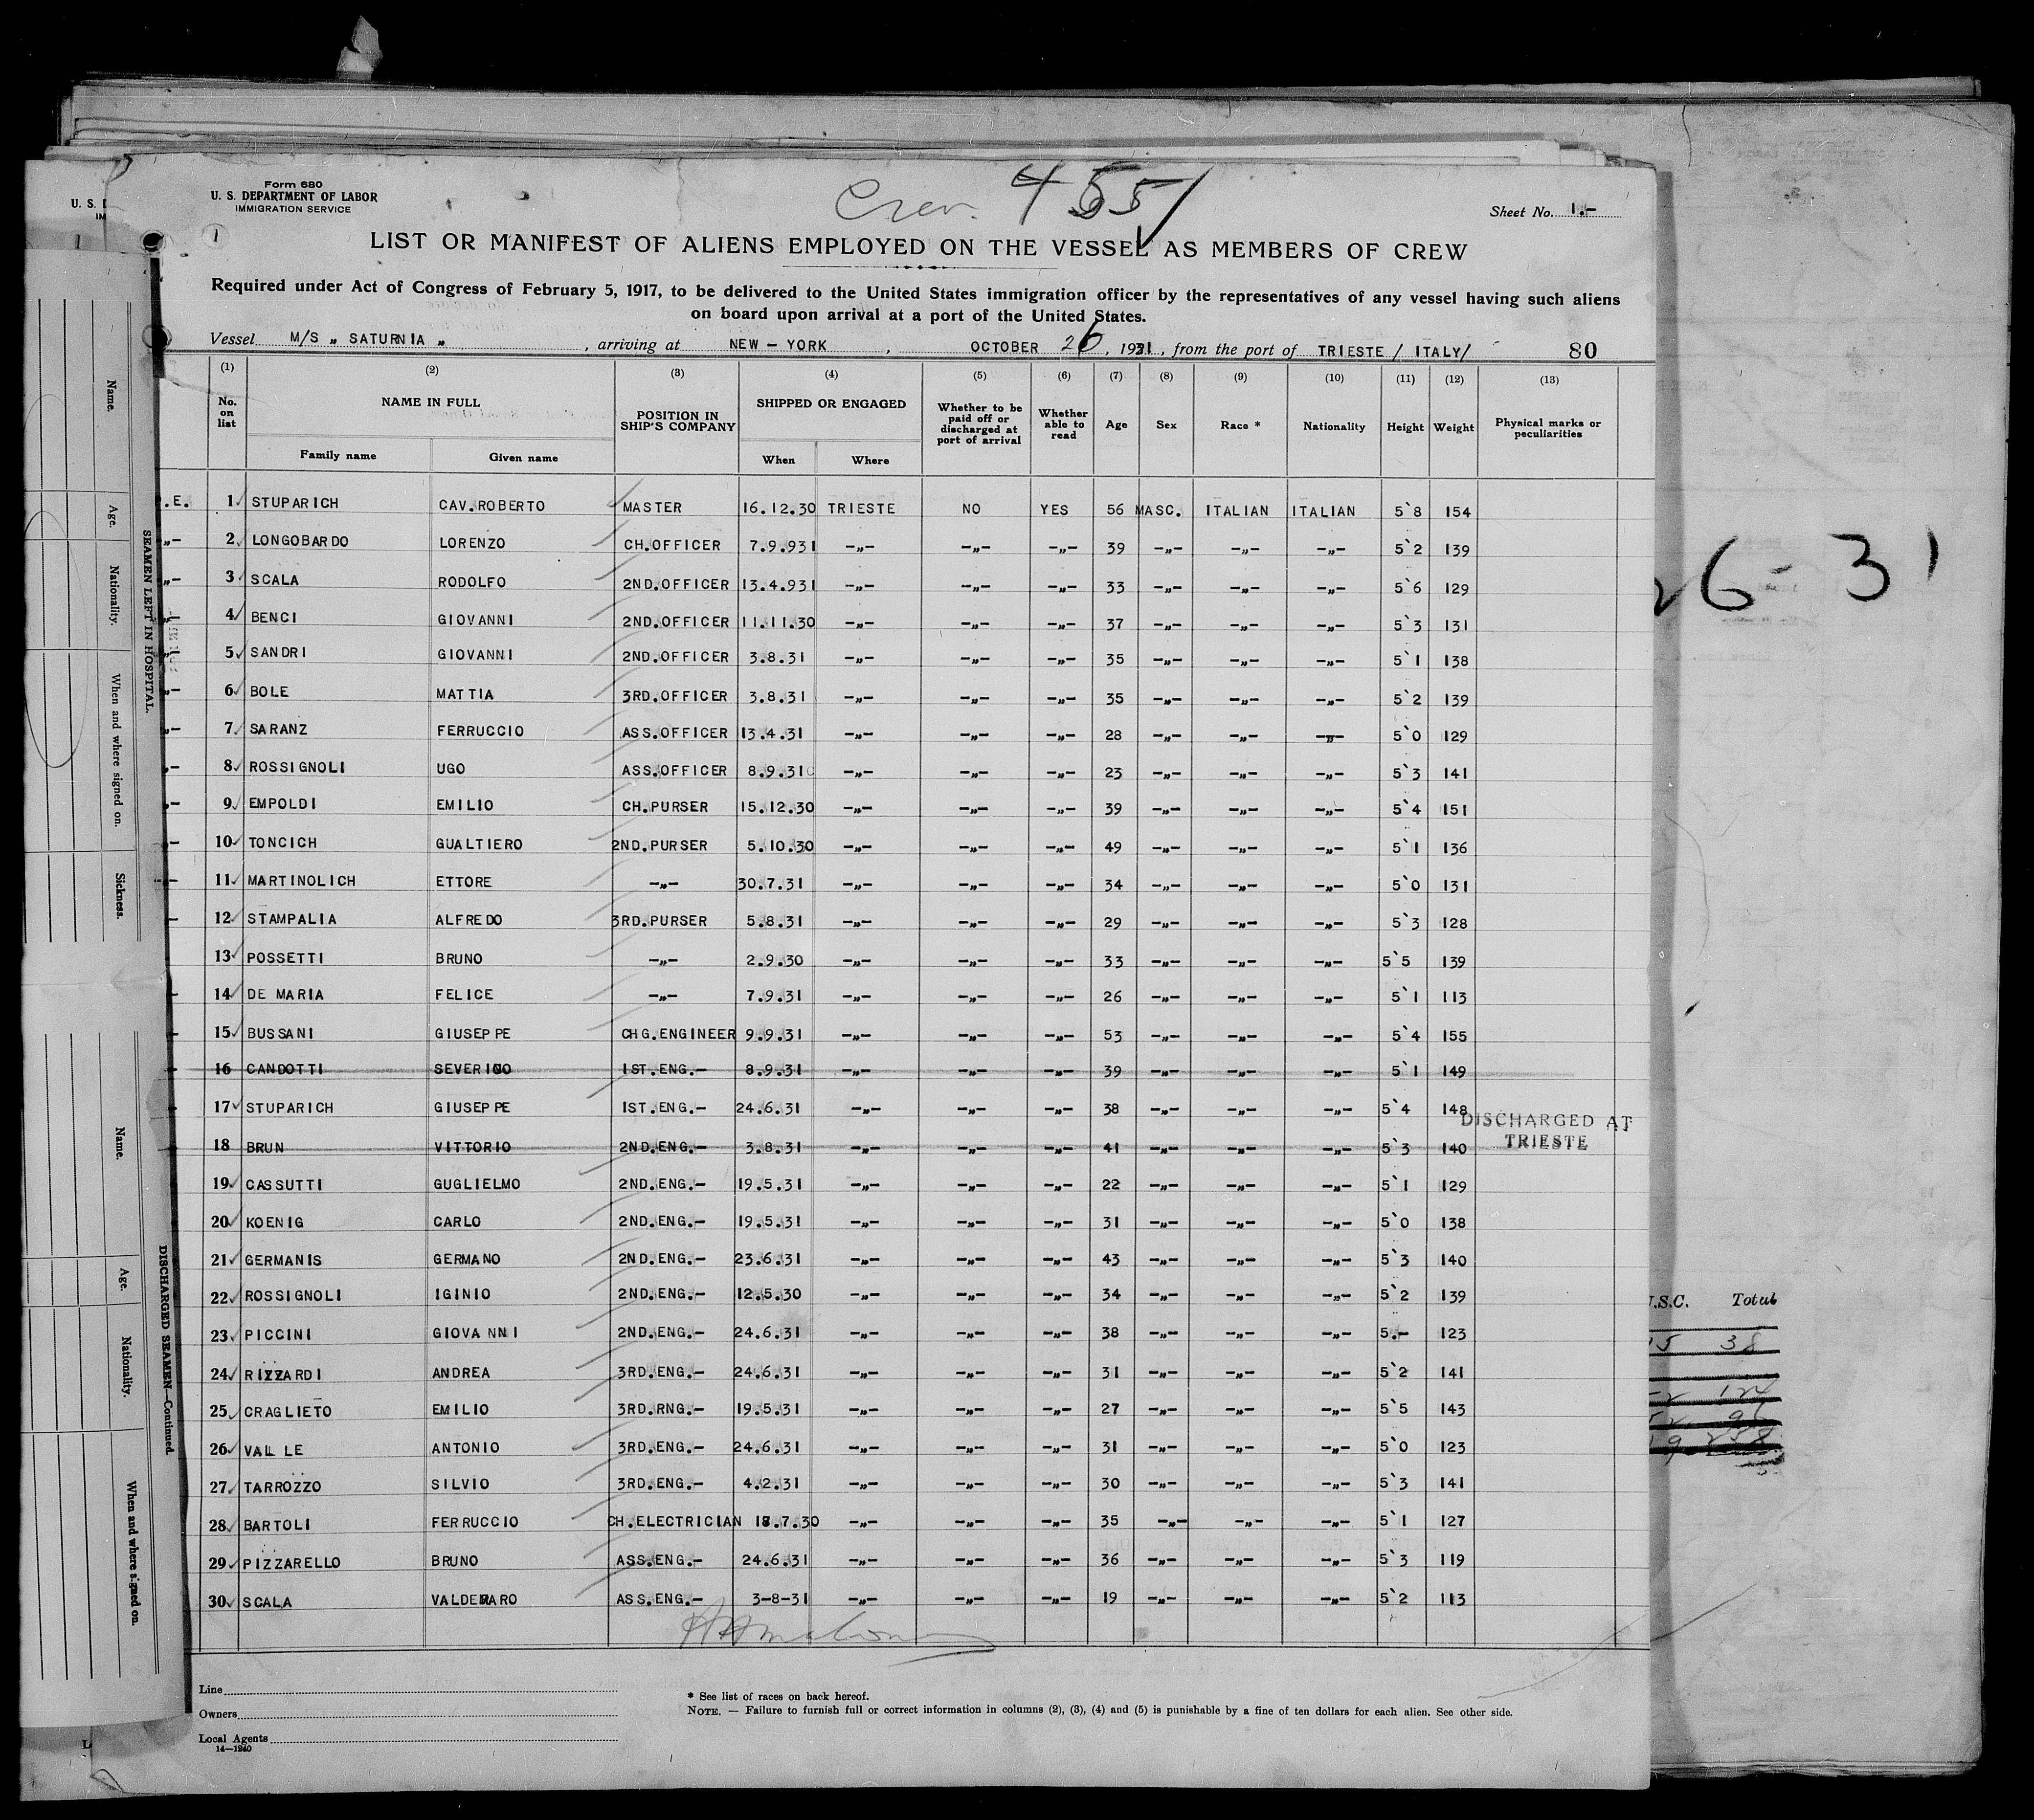 Form 680
U. S. DEPARTMENT OF LABOR
IMMIGRATION SERVICE
Crew. 455
Sheet No. 1.-
1
LIST OR MANIFEST OF ALIENS EMPLOYED ON THE VESSEL AS MEMBERS OF CREW
Required under Act of Congress of February 5, 1917, to be delivered to the United States immigration officer by the representatives of any vessel having such aliens
on board upon arrival at a port of the United States.
Vessel M/S „ SATURNIA „ , arriving at NEW – YORK , OCTOBER 26 , 1931 , from the port of TRIESTE / ITALY/ 80
(1) (2) (3) (4) (5) (6) (7) (8) (9) (10) (11) (12) (13)
No. on list NAME IN FULL POSITION IN SHIP'S COMPANY SHIPPED OR ENGAGED Whether to be paid off or discharged at port of arrival Whether able to read Age Sex Race * Nationality Height Weight Physical marks or peculiarities
Family name Given name When Where
.E. 1 STUPARICH CAV.ROBERTO MASTER 16.12.30 TRIESTE NO YES 56 MASC. ITALIAN ITALIAN 5`8 154
„– 2 LONGOBARDO LORENZO CH.OFFICER 7.9.931 –„– –„– –„– 39 –„– –„– –„– 5`2 139
„– 3 SCALA RODOLFO 2ND.OFFICER 13.4.931 –„– –„– –„– 33 –„– –„– –„– 5`6 129
„– 4 BENCI GIOVANNI 2ND.OFFICER 11.11.30 –„– –„– –„– 37 –„– –„– –„– 5`3 131
„– 5 SANDRI GIOVANNI 2ND.OFFICER 3.8.31 –„– –„– –„– 35 –„– –„– –„– 5`1 138
„– 6 BOLE MATTIA 3RD.OFFICER 3.8.31 –„– –„– –„– 35 –„– –„– –„– 5`2 139
„– 7 SARANZ FERRUCCIO ASS.OFFICER 13.4.31 –„– –„– –„– 28 –„– –„– –„– 5`0 129
„– 8 ROSSIGNOLI UGO ASS.OFFICER 8.9.31 –„– –„– –„– 23 –„– –„– –„– 5`3 141
„– 9 EMPOLDI EMILIO CH.PURSER 15.12.30 –„– –„– –„– 39 –„– –„– –„– 5`4 151
– 10 TONCICH GUALTIERO 2ND.PURSER 5.10.30 –„– –„– –„– 49 –„– –„– –„– 5`1 136
– 11 MARTINOLICH ETTORE –„– 30.7.31 –„– –„– –„– 34 –„– –„– –„– 5`0 131
– 12 STAMPALIA ALFREDO 3RD.PURSER 5.8.31 –„– –„– –„– 29 –„– –„– –„– 5`3 128
– 13 POSSETTI BRUNO –„– 2.9.30 –„– –„– –„– 33 –„– –„– –„– 5`5 139
– 14 DE MARIA FELICE –„– 7.9.31 –„– –„– –„– 26 –„– –„– –„– 5`1 113
– 15 BUSSANI GIUSEPPE CHG.ENGINEER 9.9.31 –„– –„– –„– 53 –„– –„– –„– 5`4 155
– 16 CANDOTTI SEVERINO 1ST.ENG.– 8.9.31 –„– –„– –„– 39 –„– –„– –„– 5`1 149
– 17 STUPARICH GIUSEPPE 1ST.ENG.– 24.6.31 –„– –„– –„– 38 –„– –„– –„– 5`4 148
DISCHARGED AT TRIESTE
– 18 BRUN VITTORIO 2ND.ENG.– 3.8.31 –„– –„– –„– 41 –„– –„– –„– 5`3 140
– 19 CASSUTTI GUGLIELMO 2ND.ENG.– 19.5.31 –„– –„– –„– 22 –„– –„– –„– 5`1 129
– 20 KOENIG CARLO 2ND.ENG.– 19.5.31 –„– –„– –„– 31 –„– –„– –„– 5`0 138
21 GERMANIS GERMANO 2ND.ENG.– 23.6.31 –„– –„– –„– 43 –„– –„– –„– 5`3 140
22 ROSSIGNOLI IGINIO 2ND.ENG.– 12.5.30 –„– –„– –„– 34 –„– –„– –„– 5`2 139
23 PICCINI GIOVANNI 2ND.ENG.– 24.6.31 –„– –„– –„– 38 –„– –„– –„– 5.– 123
24 RIZZARDI ANDREA 3RD.ENG.– 24.6.31 –„– –„– –„– 31 –„– –„– –„– 5`2 141
25 CRAGLIETO EMILIO 3RD.RNG.– 19.5.31 –„– –„– –„– 27 –„– –„– –„– 5`5 143
26 VALLE ANTONIO 3RD.ENG.– 24.6.31 –„– –„– –„– 31 –„– –„– –„– 5`0 123
27 TARROZZO SILVIO 3RD.ENG.– 4.2.31 –„– –„– –„– 30 –„– –„– –„– 5`3 141
28 BARTOLI FERRUCCIO CH.ELECTRICIAN 18.7.30 –„– –„– –„– 35 –„– –„– –„– 5`1 127
29 PIZZARELLO BRUNO ASS.ENG.– 24.6.31 –„– –„– –„– 36 –„– –„– –„– 5`3 119
30 SCALA VALDEMARO ASS.ENG.– 3-8-31 –„– –„– –„– 19 –„– –„– –„– 5`2 113
Line
Owners
Local Agents
14—1240
* See list of races on back hereof.
NOTE. — Failure to furnish full or correct information in columns (2), (3), (4) and (5) is punishable by a fine of ten dollars for each alien. See other side.
U. S.
1
Name.
Age.
Nationality.
When and where signed on.
Sickness.
SEAMEN LEFT IN HOSPITAL.
Name.
Age.
Nationality.
When and where signed on.
DISCHARGED SEAMEN—Continued.
26-31
U.S.C. Total
38
124